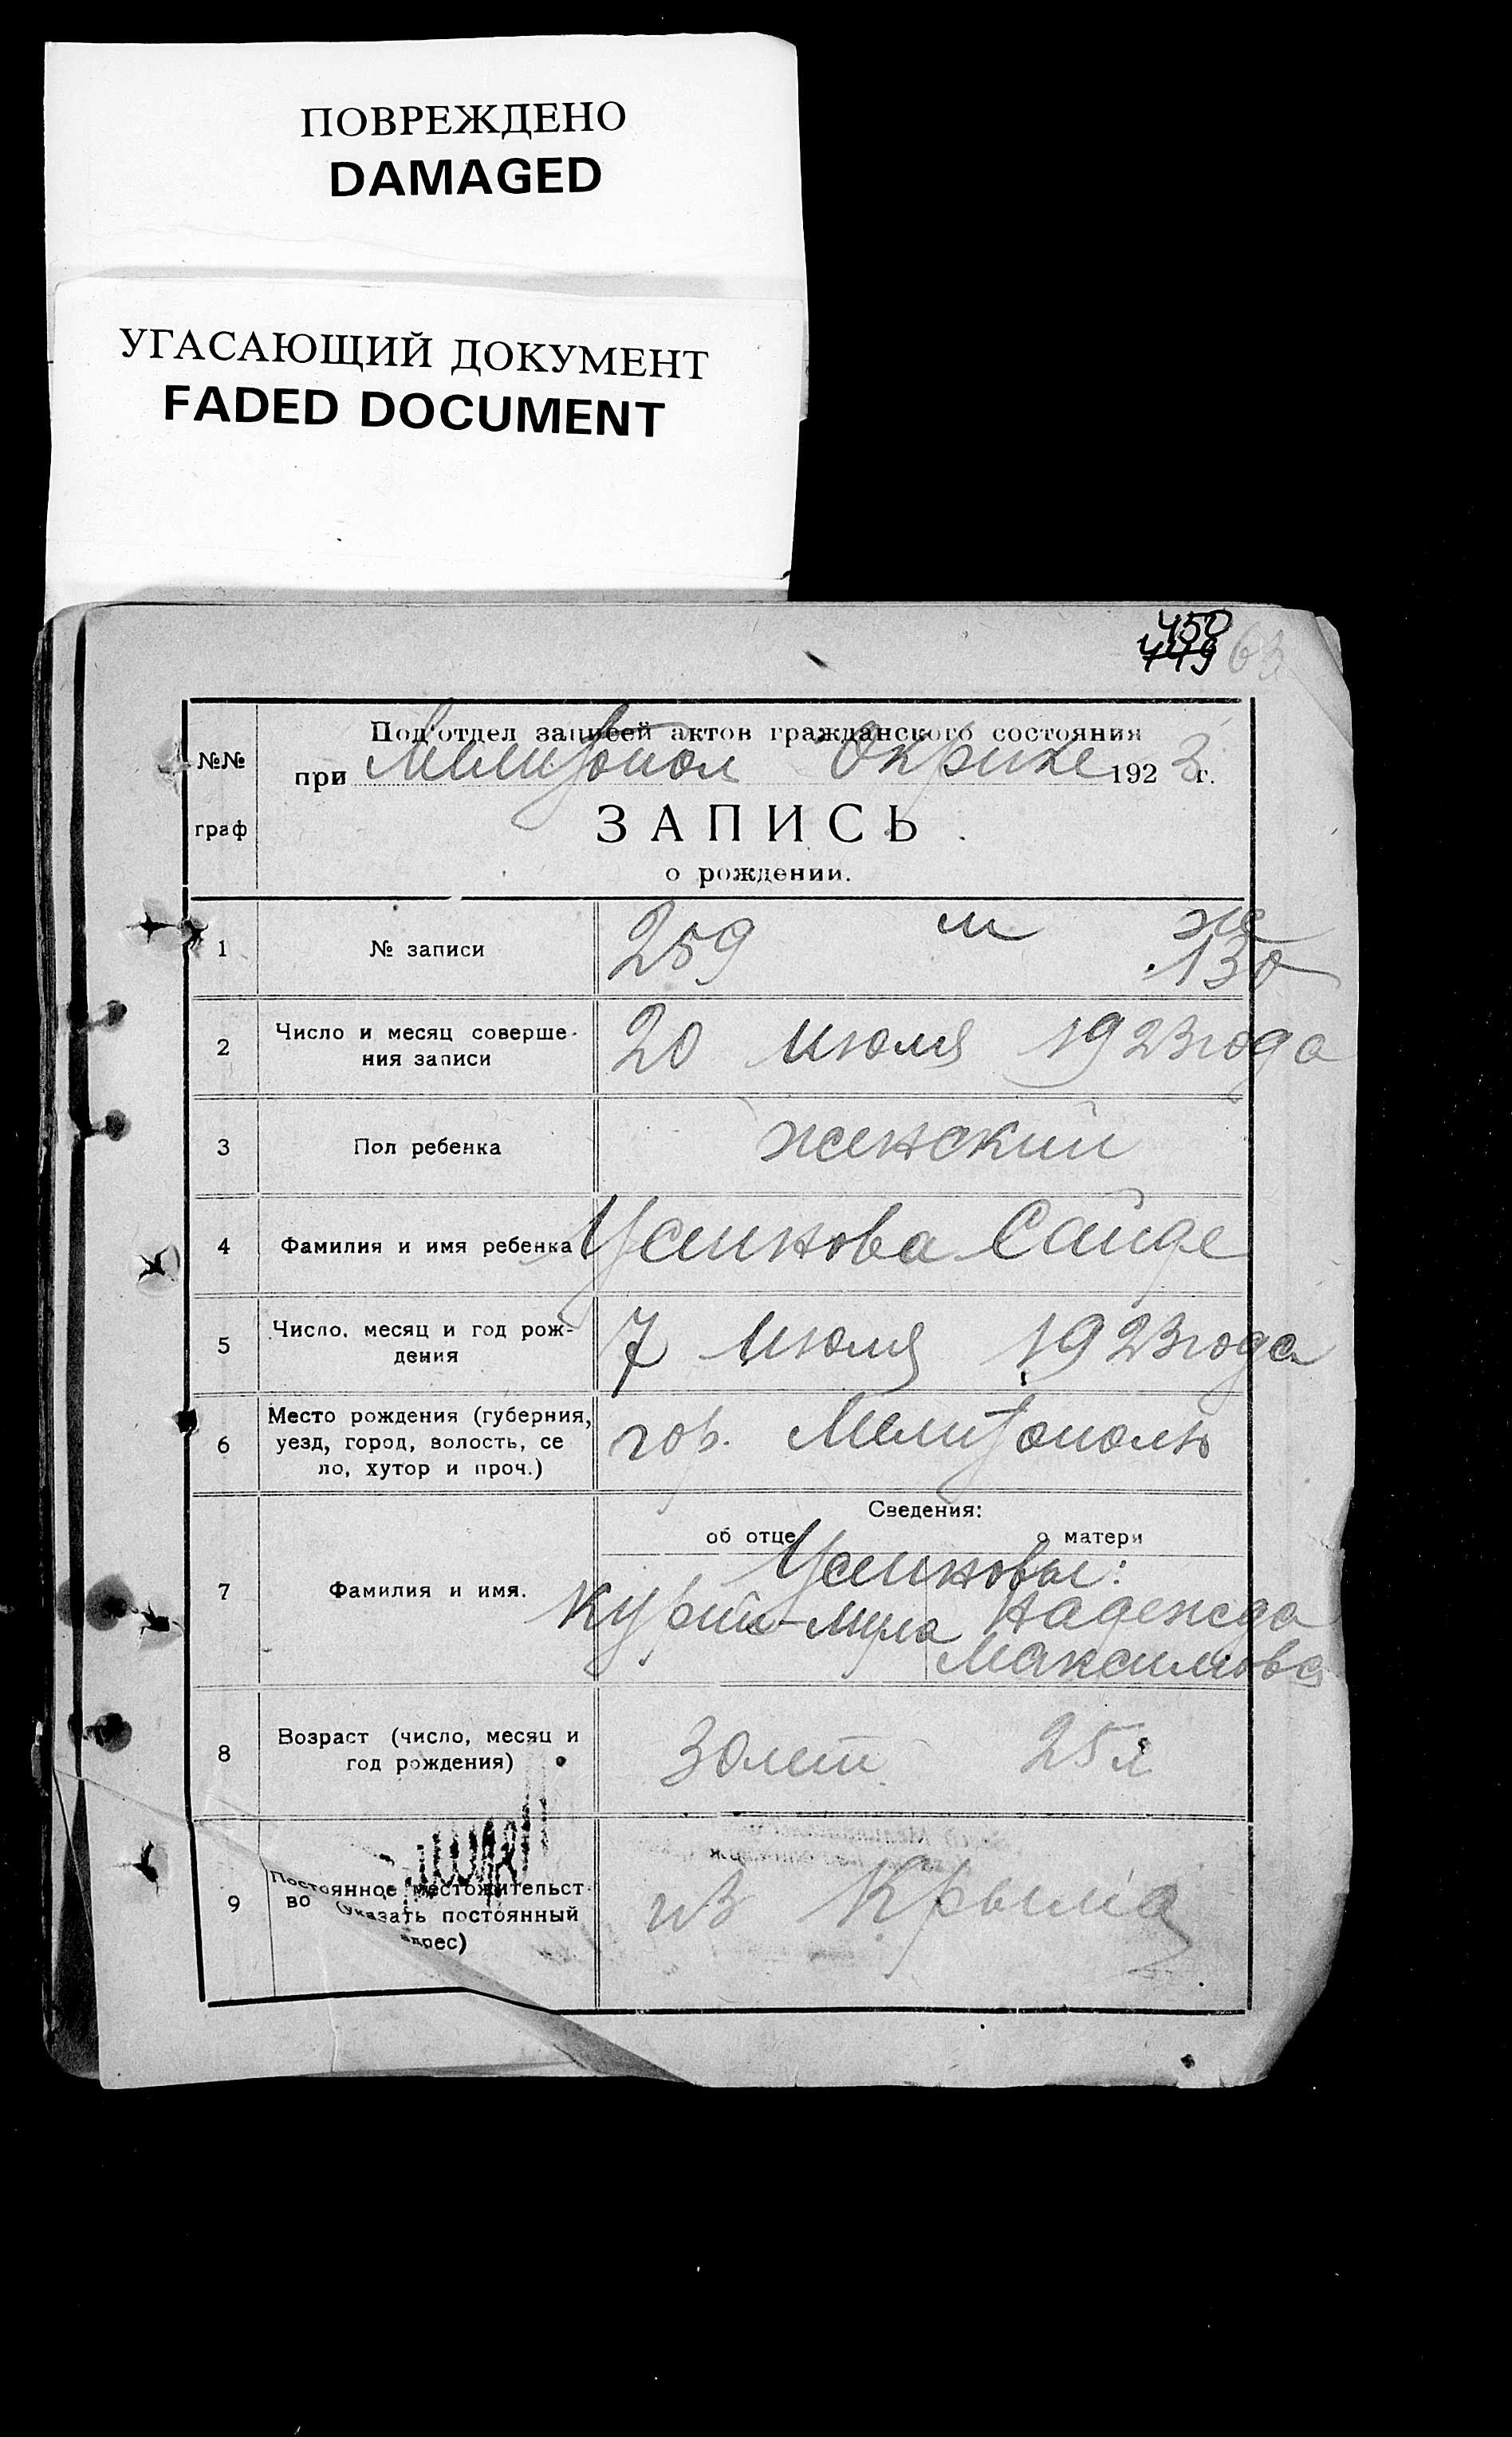 ПОВРЕЖДЕНО
DAMAGED
УГАСАЮЩИЙ ДОКУМЕНТ
FADED DOCUMENT
450
449 63
№№ граф
Под'отдел записей актов гражданского состояния
при Мелитопол Окрике 1923 г.
ЗАПИСЬ
о рождении.
1 № записи 259 м ж
130
2 Число и месяц соверше-
ния записи 20 июля 1923 года
3 Пол ребенка женский
4 Фамилия и имя ребенка Усинова Сайде
5 Число, месяц и год рож-
дения 7 июля 1923 года
6 Место рождения (губерния,
уезд, город, волость, се
ло, хутор и проч.) гор. Мелитополь
Сведения:
об отце о матери
Усиновы:
7 Фамилия и имя. Надежда
Максимова
8 Возраст (число, месяц и
год рождения) 30 лет 25 л
9 Постоянное местожительст-
во (указать постоянный
адрес) из Крыма